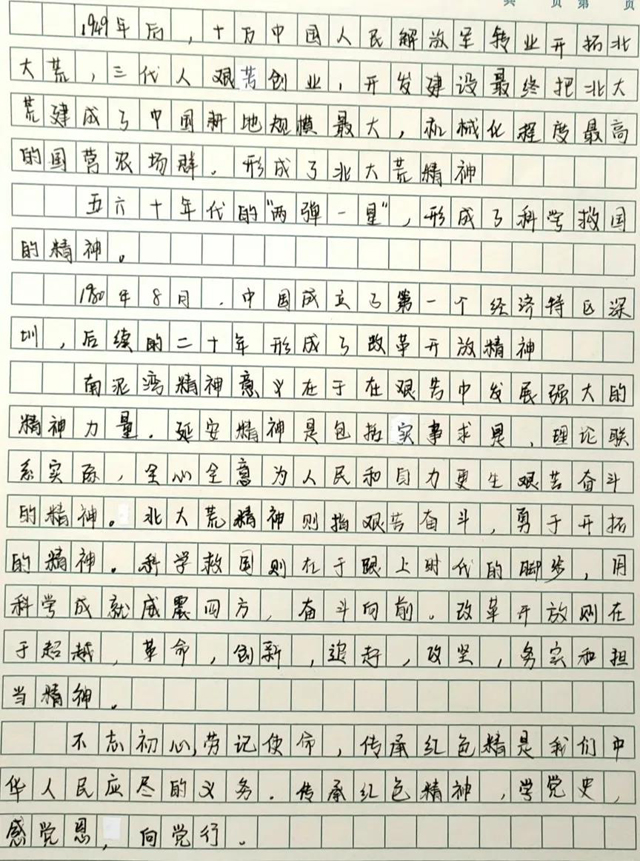 共 页 第 页
1949年后，十万中国人民解放军转业开拓北
大荒，三代人艰苦创业，开发建设最终把北大
荒建成了中国耕地规模最大，机械化程度最高
的国营农场群．形成了北大荒精神
五六十年代的“两弹一星”，形成了科学救国
的精神。
1980年8月．中国成立了第一个经济特区深
圳，后续的二十年形成了改革开放精神
南泥湾精神意义在于在艰苦中发展强大的
精神力量．延安精神是包括实事求是、理论联
系实际，全心全意为人民和自力更生艰苦奋斗
的精神。北大荒精神则指艰苦奋斗，勇于开拓
的精神．科学救国则在于跟上时代的脚步，用
科学成就威震四方，奋斗向前．改革开放则在
于超越，革命，创新，追赶，攻坚，务实和担
当精神．
不忘初心，劳记使命，传承红色精是我们中
华人民应尽的义务．传承红色精神，学党史，
感党恩，向党行。